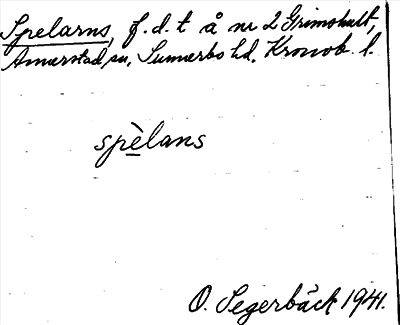 Spelarns, f.d.t å nr 2 Grimshult,
Annerstad sn, Sunnerbo hd. Kronob. l.
spèlans
O. Segerbäck 1941.